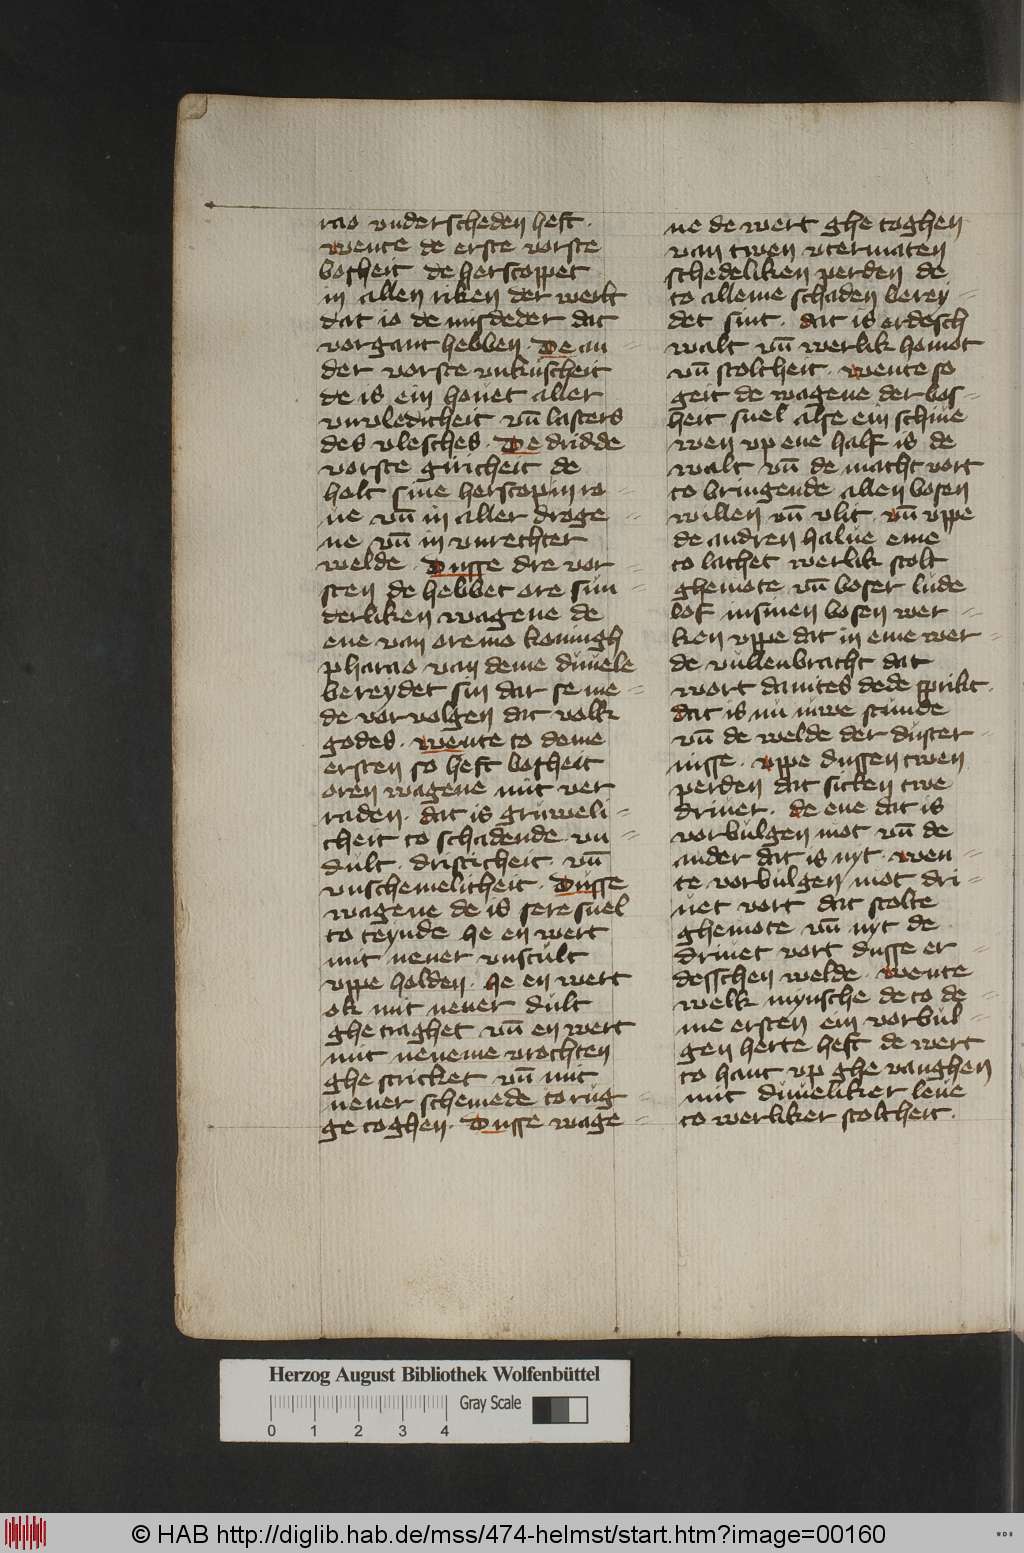 rao vnderscheden heft.
wente de erste vorste
bosheit de herscoppet
in allen riken der werlt
dat io de misdeder dat
vorgant hebben. De an
der vorste vnkuscheit
de is ein houet aller
vnvledicheit vn̄ lasters
des vlesches. De dridde
vorste giricheit de
holt sine herscop in ro =
ue vn̄ in aller droge =
ne vn̄ in vnrechter
welde. Dusse dre vor =
sten de hebbet ore sun =
derliken wagene de
ene van oremo koningh
pharao van deme duuele
bereydet sin dar se me =
de vorvolgen dat volk
godes. wente to deme
ersten so heft bosheit
oren wagene mit ver
raden. dat is gruweli =
cheit to schadende. vn =
dult. dristicheit. vn̄
vnschemelicheit. Dusse
wagene de is sere snel
to teynde he en wert
mit nener vnscult
vppe holden. he en wert
ok mit nener dult
ghe traghet vn̄ en wert
mit neneme vrochten
ghe stricket vn̄ mit
nener schemede to rug =
ge toghen. Dusse wage =
ne de wert ghe toghen
van twen vtermaten
schedeliken perden de
to alleme schaden berey =
det sint. dat is erdesch
walt vn̄ werlik homot
vn̄ stoltheit. wente so
geit de wagene der bos =
heit snel alse ein schine
wen vp ene half is de
walt vn̄ de macht vort
to bringende allen bosen
willen vn̄ vlit. vn̄ vppe
de andren halue eme
to lachet werlik stolt
ghemote vn̄ boser lude
lof in sinen bosen wer =
ken vppe dat in eme wer =
de vullenbracht dat
wort dauites dede sprikt.
dat is nu iuwe stunde
vn̄ de welde der duster =
nisse. vppe dussen twen
perden dat sitten twe
driuer. de ene dat is
vorbulgen mot vn̄ de
ander dat is nyt. wen =
te vorbulgen mot dri =
uet vort dat stolte
ghemote vn̄ nyt de
driuet vort dusse er =
desschen welde. wente
welk mynsche de to de =
me ersten ein vorbul =
gen herte heft de wert
to hant vp ghe vanghen
mit duueliker leue
to werliker stoltheit.
Herzog August Bibliothek Wolfenbüttel
Gray Scale
0 1 2 3 4
© HAB http://diglib.hab.de/mss/474-helmst/start.htm?image=00160